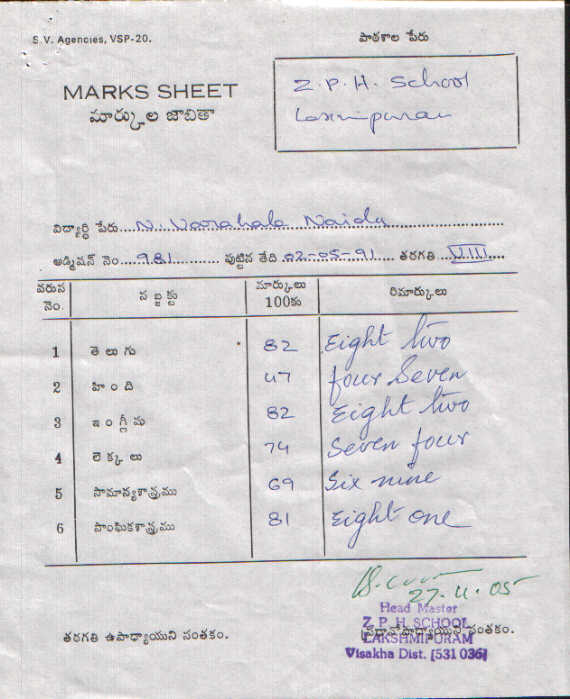 S.V. Agencies, VSP-20.
పాఠశాల పేరు
MARKS SHEET
మార్కుల జాబితా
Z.P.H. School
Laxmipuram
విద్యార్థి పేరు....N. Varahala Naidu
అడ్మిషన్ నెం....981....పుట్టిన తేది..02-05-91....తరగతి...VIII....
వరుస నెం. సబ్జక్టు మార్కులు 100కు రిమార్కులు
1 తెలుగు 82 Eight two
2 హింది 47 four Seven
3 ఇంగ్లీషు 82 Eight two
4 లెక్కలు 74 Seven four
5 సామాన్యశాస్త్రము 69 Six nine
6 సాంఘికశాస్త్రము 81 Eight one
27.11.05
Head Master
తరగతి ఉపాధ్యాయుని సంతకం. ప్రధానోపాధ్యాయుని సంతకం.
Z. P. H. SCHOOL
LAKSHMIPURAM
Visakha Dist. [531 036]